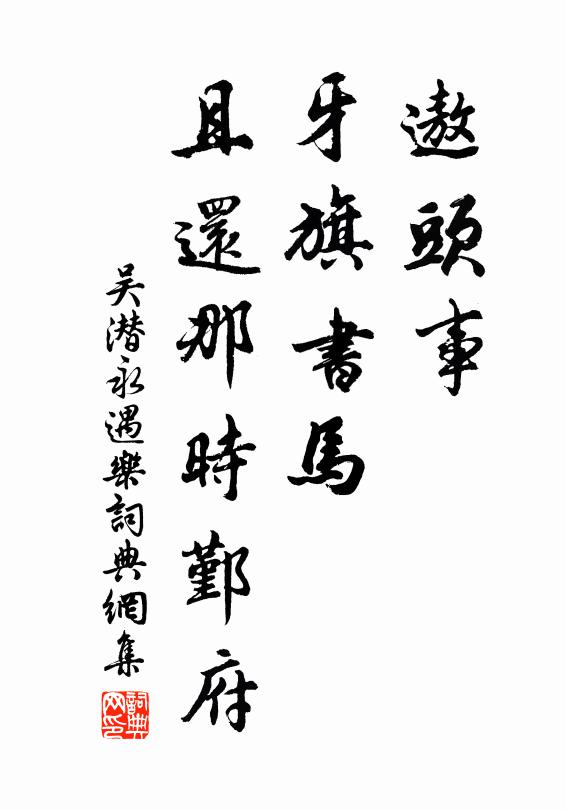 遨頭事
牙旗書馬
且還那時鄞府
吴潛永遇樂詞典網集
詞典網印